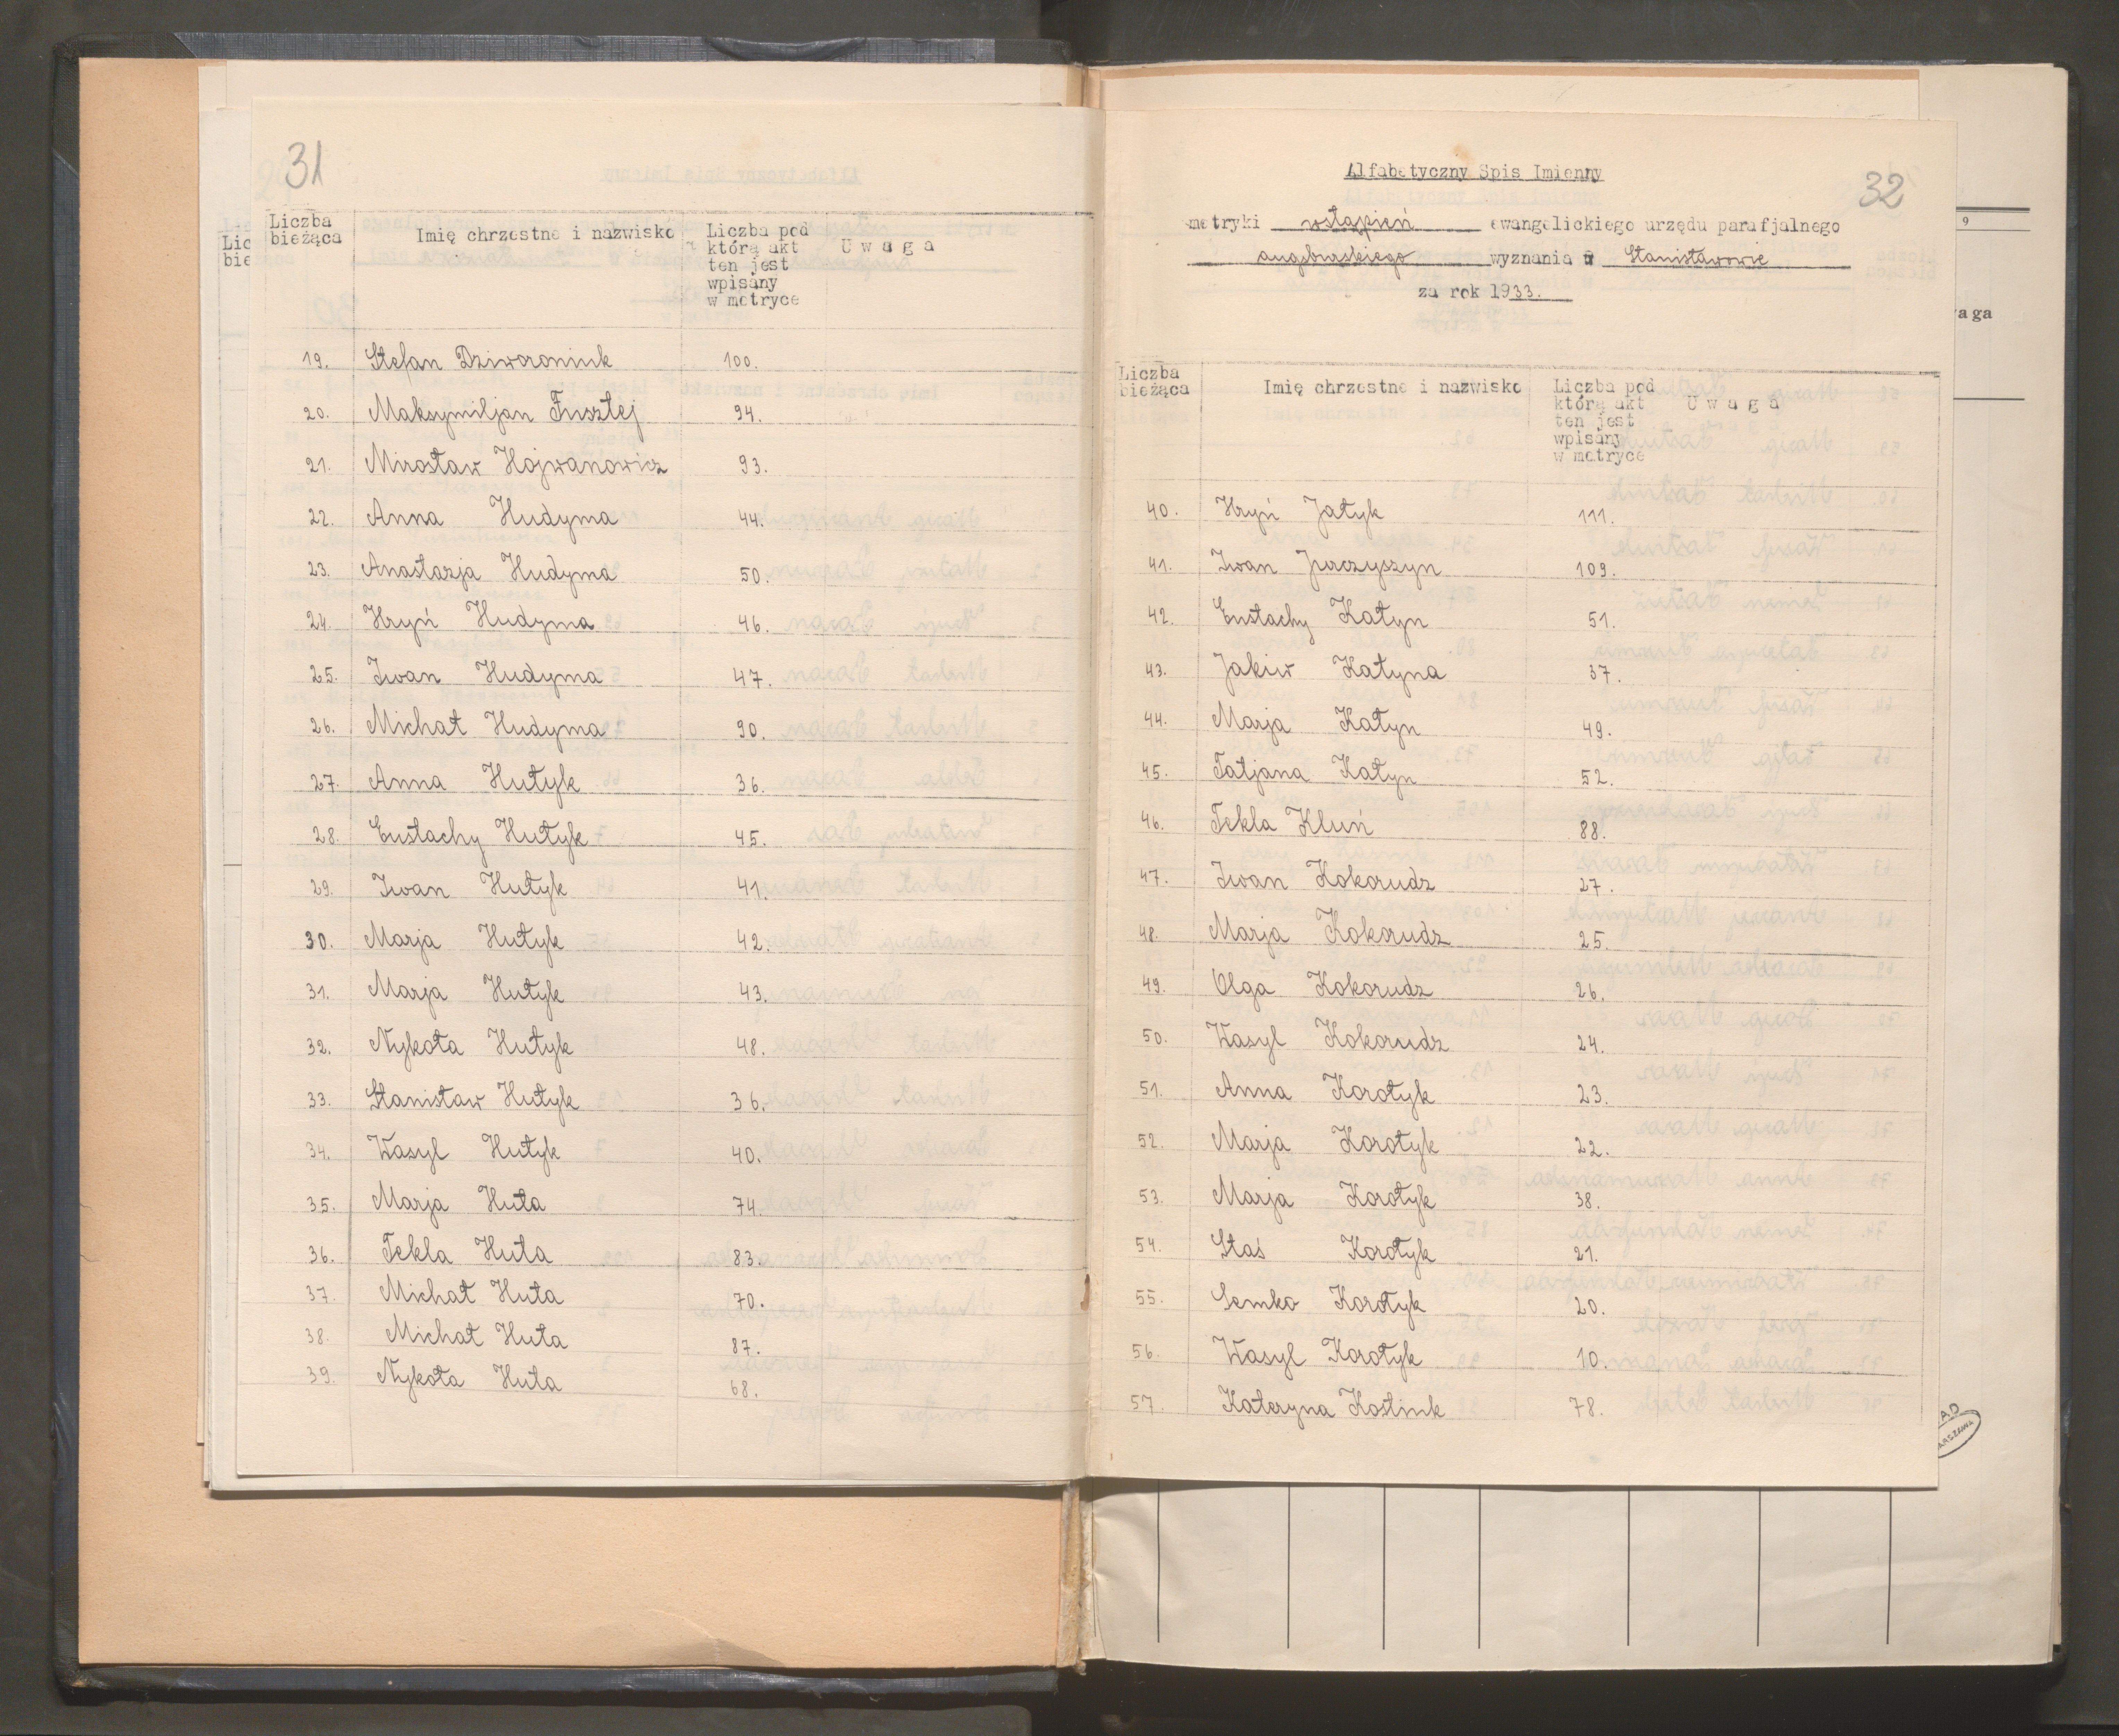 31
Liczba bieżąca
Imię chrzestne i nazwisko
Liczba pod którą akt ten jest wpisany w metryce
U w a g a
19. Stefan Dziworoniuk 100.
20. Maksymiljan Fusztej 94.
21. Mirosław Hojwanowicz 93.
22. Anna Hudyma 44.
23. Anastazja Hudyma 50.
24. Hryń Hudyma 46.
25. Iwan Hudyma 47.
26. Michał Hudyma 90.
27. Anna Hutyk 36.
28. Eustachy Hutyk 45.
29. Iwan Hutyk 41.
30. Marja Hutyk 42.
31. Marja Hutyk 43.
32. Nykoła Hutyk 48.
33. Stanisław Hutyk 36.
34. Wasyl Hutyk 40.
35. Marja Huta 74.
36. Tekla Huta 83.
37. Michał Huta 70.
38. Michał Huta 87.
39. Nykoła Huta 68.
Alfabetyczny Spis Imienny
32
metryki wstąpień ewangelickiego urzędu parafjalnego
augsburskiego wyznania w Stanisławowie
za rok 1933.
Liczba bieżąca
Imię chrzestne i nazwisko
Liczba pod którą akt ten jest wpisany w metryce
U w a g a
40. Hryń Jatyk 111.
41. Iwan Jurczyszyn 109.
42. Eustachy Katyn 51.
43. Jakiw Katyna 37.
44. Marja Katyn 49.
45. Tatjana Katyn 52.
46. Tekla Kluń 88.
47. Iwan Kokorudz 27.
48. Marja Kokorudz 25.
49. Olga Kokorudz 26.
50. Wasyl Kokorudz 24.
51. Anna Korotyk 23.
52. Marja Korotyk 22.
53. Marja Korotyk 38.
54. Staś Korotyk 21.
55. Semko Korotyk 20.
56. Wasyl Korotyk 10.
57. Kateryna Kostiuk 78.
9
aga